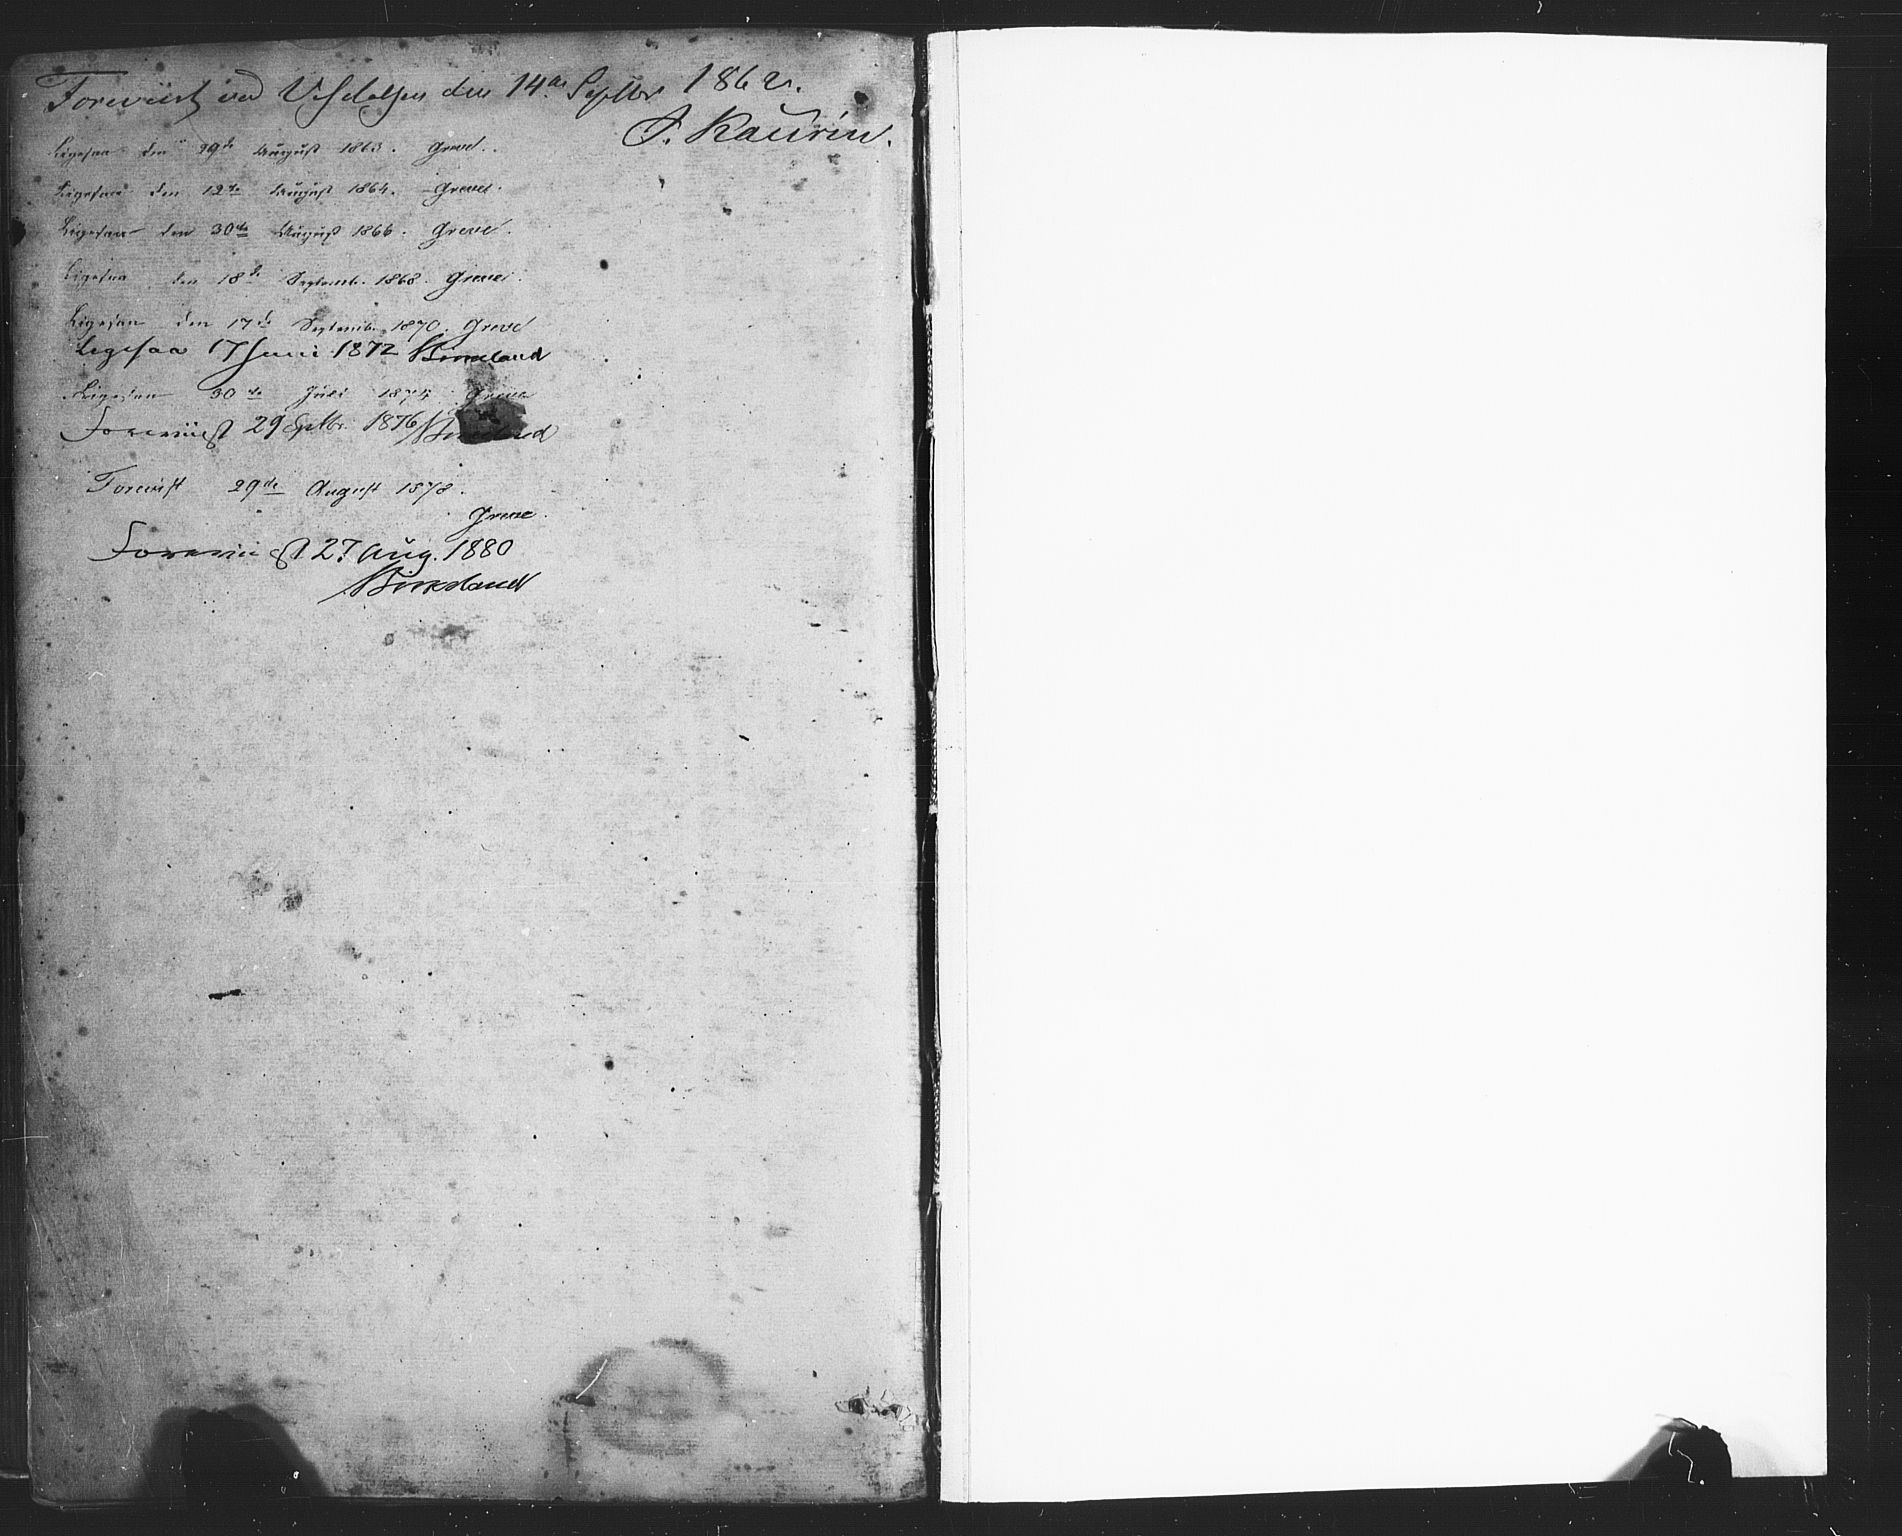 Foreviist ved Visitatsen den 14de Septbr 1862.
J. Kaurin.
Ligesaa den 29de August 1863. Greve.
Ligesaa den 12te August 1864. Greve.
Ligesaa den 30te August 1866. Greve.
Ligesaa den 18de Septemb. 1868. Greve.
Ligesaa den 17de Septemb. 1870. Greve
Ligesaa 17 Juni 1872 Birkeland
Ligesaa 30te Juli 1874 Greve
Foreviist 29 Septbr. 1876 Birkeland
Forevist 29de August 1878.
Greve.
Foreviist 27 Aug. 1880
Birkeland